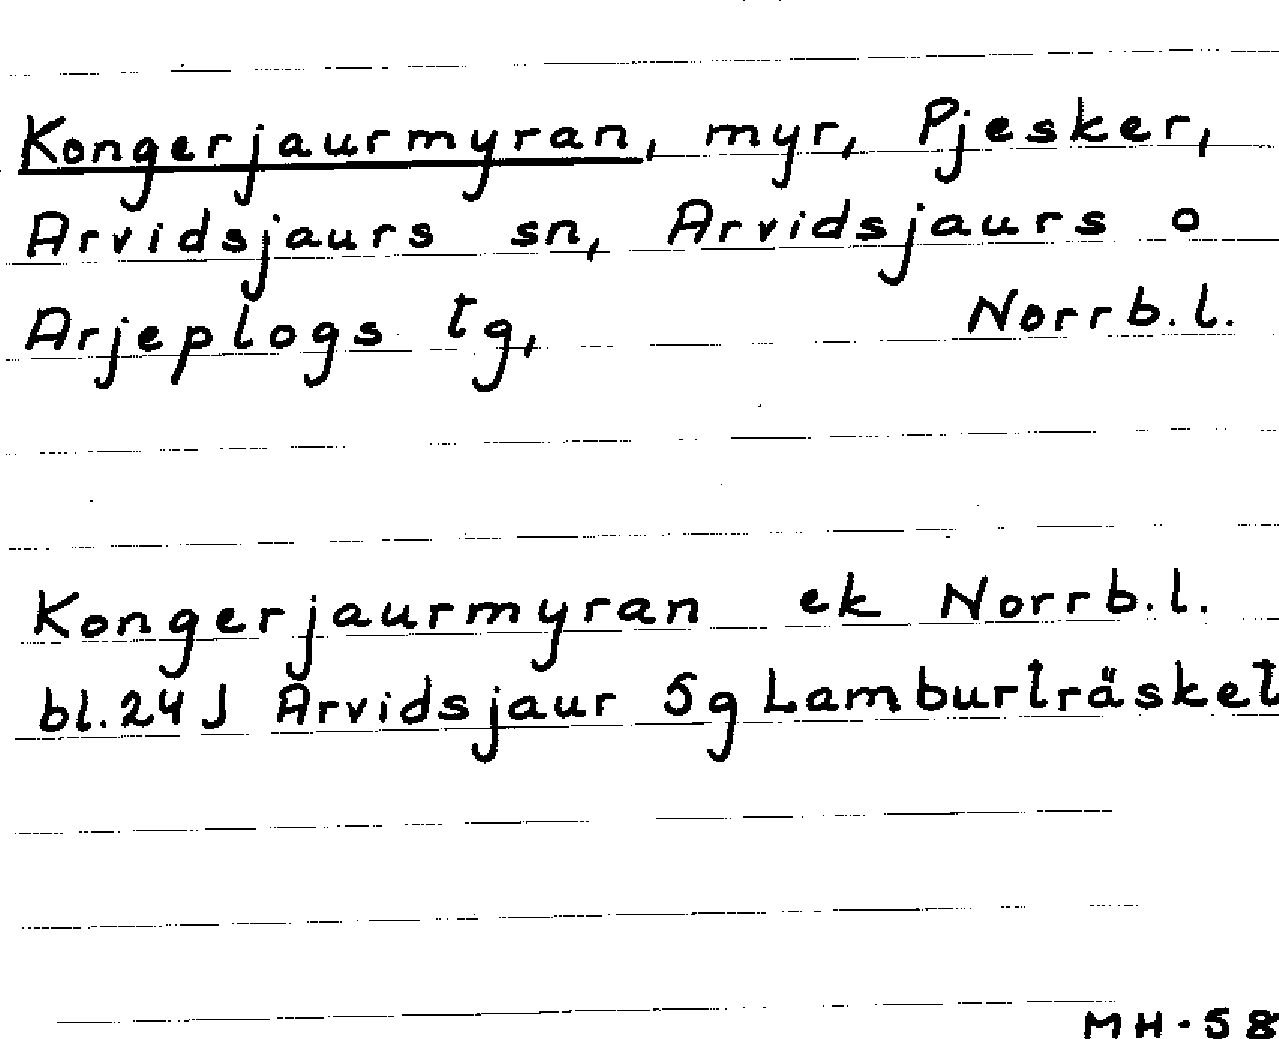 Kongerjaurmyran, myr, Pjesker,
Arvidsjaurs sn, Arvidsjaurs o
Arjeplogs tg, Norrb.l.
Kongerjaurmyran ek Norrb.l.
bl.24J Arvidsjaur 5g Lamburträsket
MH-58